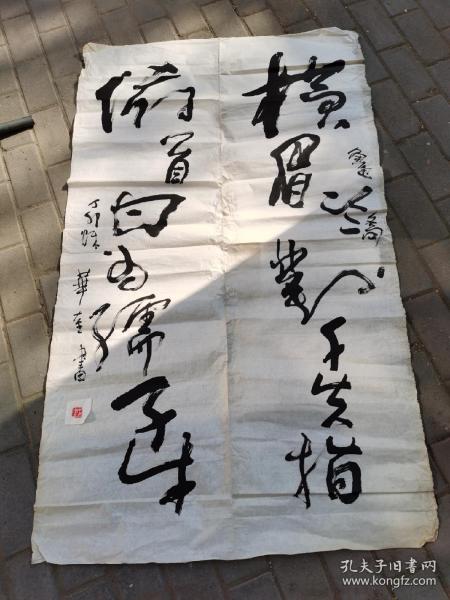 横眉對千夫指
俯首甘为孺子牛
丁卯
華奎書
孔夫子旧书网
www.kongfz.com